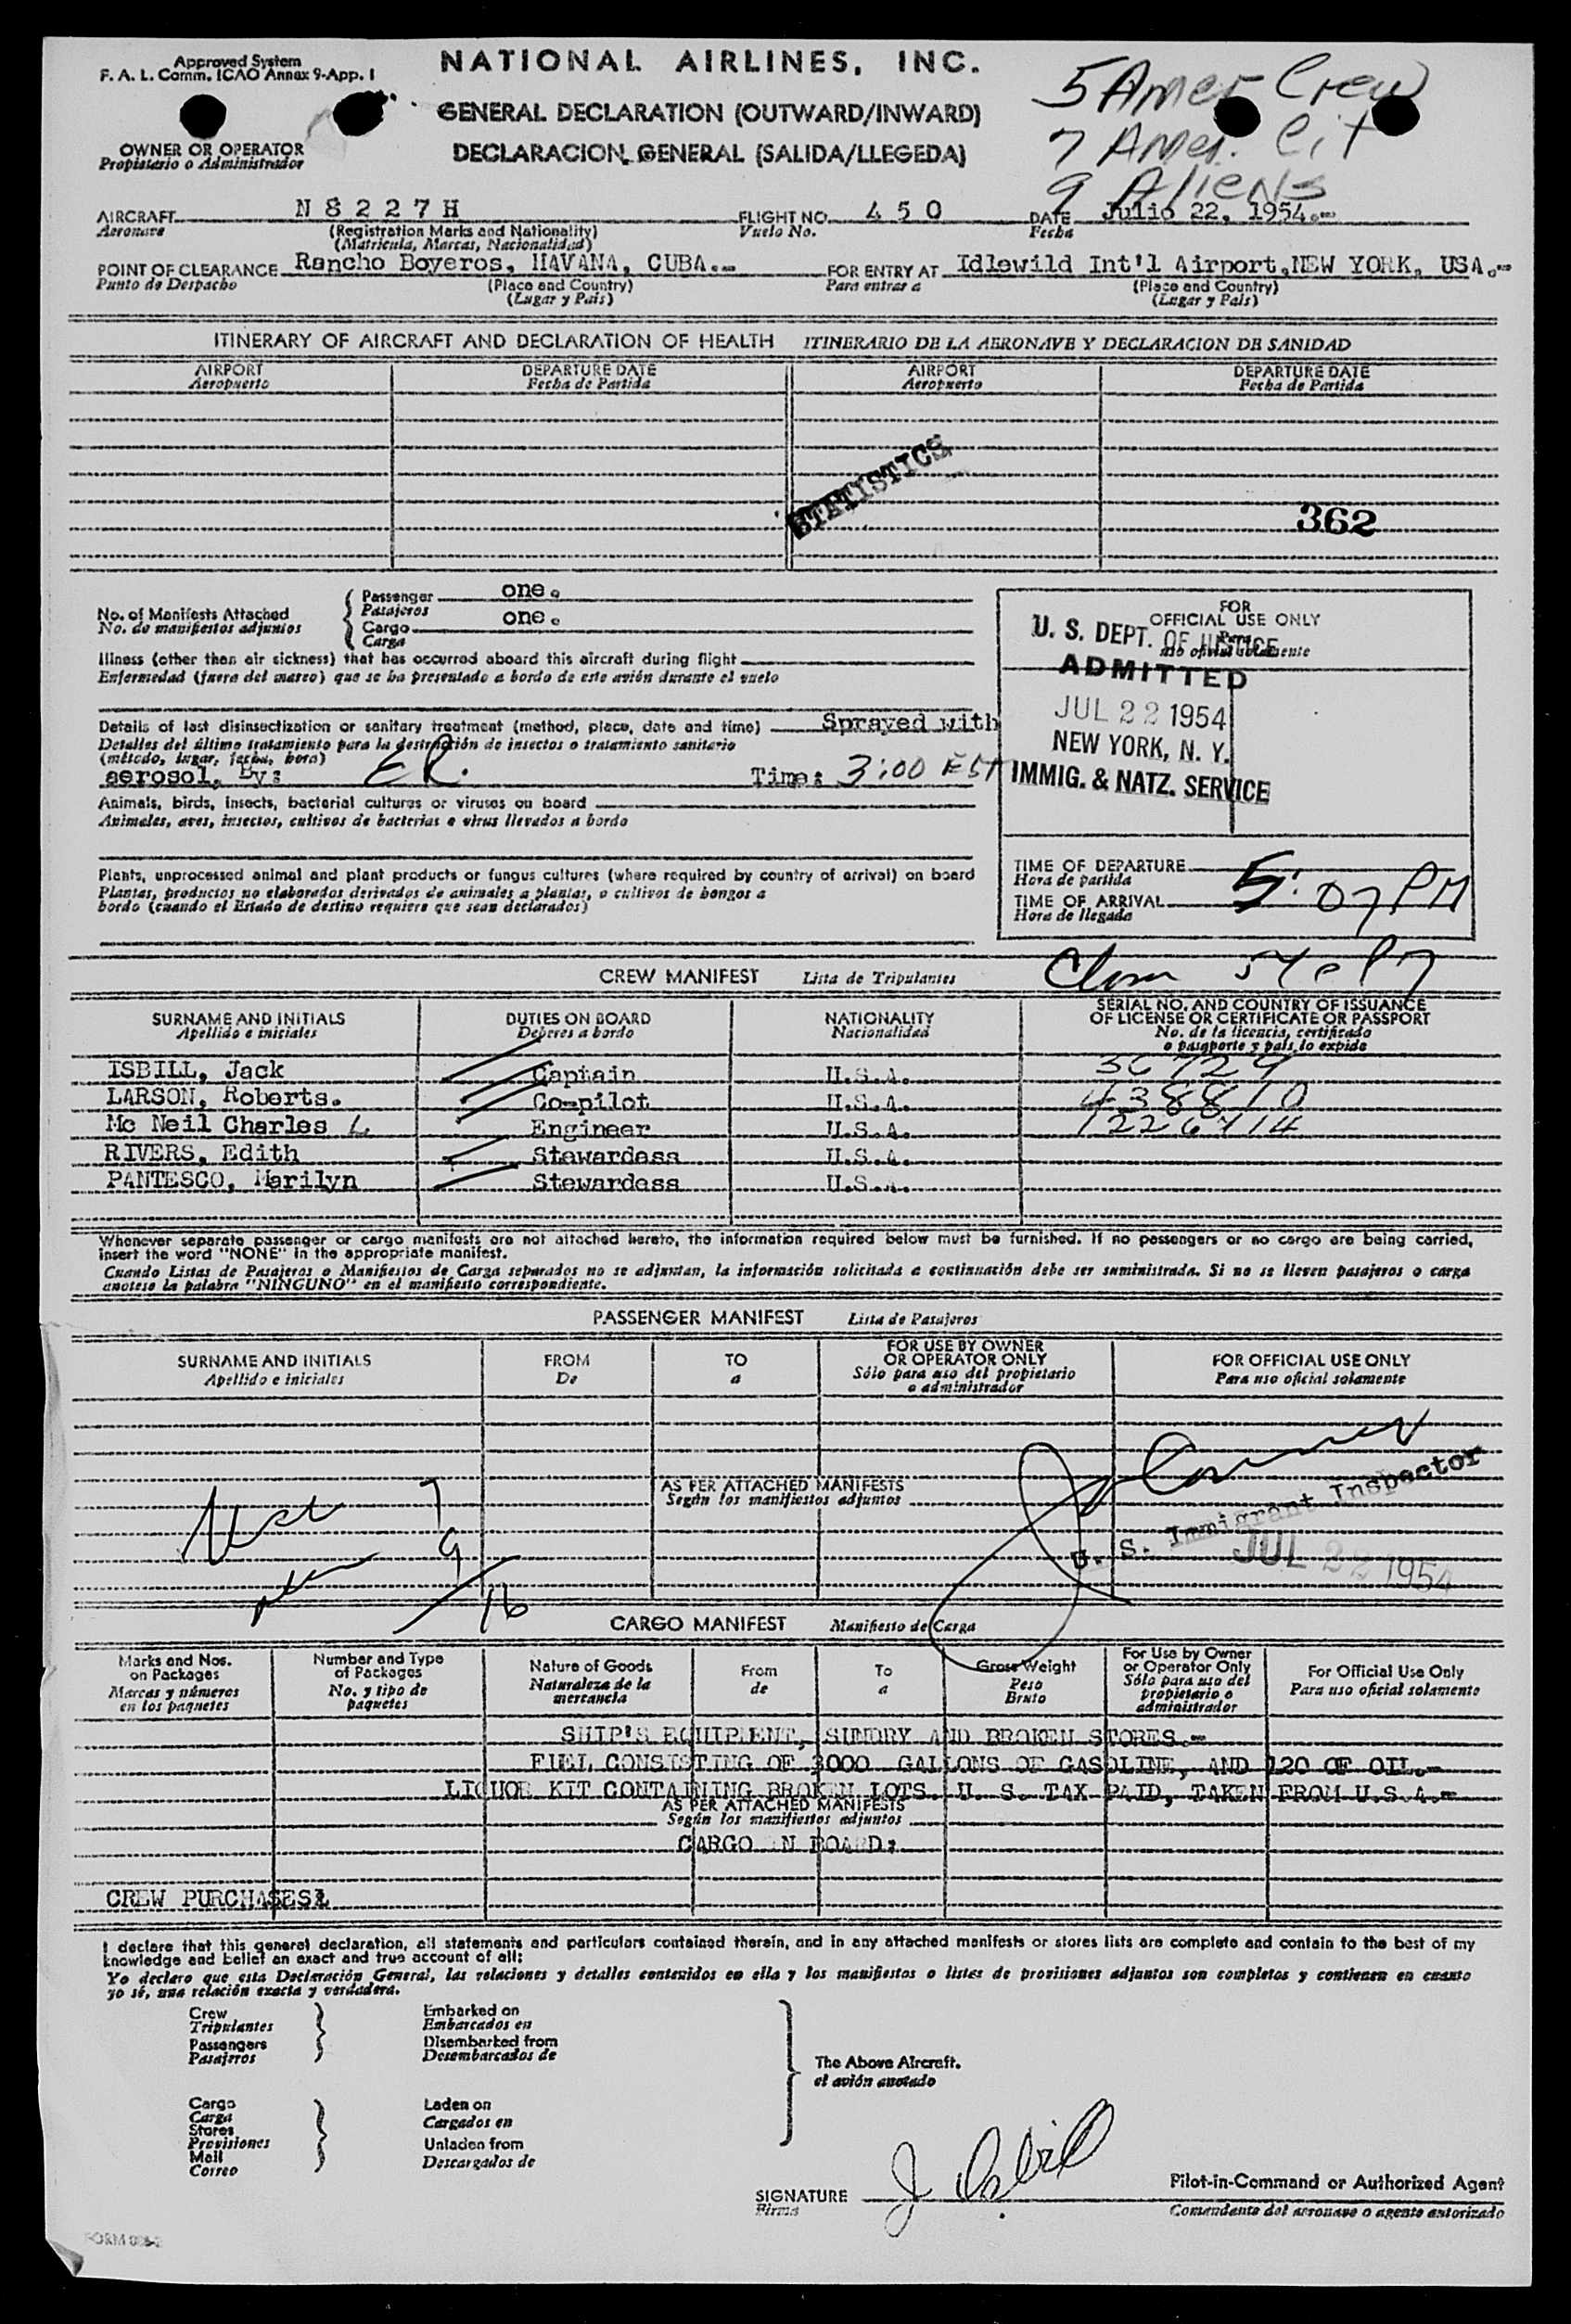 Approved System
F. A. L. Comm. ICAO Annex 9-App. I
NATIONAL AIRLINES, INC.
5 Amer Crew
GENERAL DECLARATION (OUTWARD/INWARD)
7 Amer. Cit
OWNER OR OPERATOR
Propietario o Administrador
DECLARACION GENERAL (SALIDA/LLEGEDA)
9 Aliens
AIRCRAFT N 8 2 2 7 H FLIGHT NO. 4 5 0 DATE Julio 22, 1954.-
Aeronave (Registration Marks and Nationality) Vuelo No. Fecha
(Matricula, Marcas, Nacionalidad)
POINT OF CLEARANCE Rancho Boyeros, HAVANA, CUBA.- FOR ENTRY AT Idlewild Int'l Airport, NEW YORK, USA.-
Punto de Despacho (Place and Country) Para entrar a (Place and Country)
(Lugar y Pais) (Lugar y Pais)
ITINERARY OF AIRCRAFT AND DECLARATION OF HEALTH ITINERARIO DE LA AERONAVE Y DECLARACION DE SANIDAD
AIRPORT DEPARTURE DATE AIRPORT DEPARTURE DATE
Aeropuerto Fecha de Partida Aeropuerto Fecha de Partida
STETISTICS
362
No. of Manifests Attached
No. de manifiestos adjuntos
Passenger one.
Pasajeros
Cargo one.
Carga
Illness (other than air sickness) that has occurred aboard this aircraft during flight
Enfermedad (fuera del mareo) que se ha presentado a bordo de este avión durante el vuelo
Details of last disinsectization or sanitary treatment (method, place, date and time) Sprayed with
Detalles del último tratamiento para la destrucción de insectos o tratamiento sanitario
(método, lugar, fecha, hora)
aerosol, By: ER. Time: 3:00 EST
Animals, birds, insects, bacterial cultures or viruses on board
Animales, aves, insectos, cultivos de bacterias e virus llevados a bordo
Plants, unprocessed animal and plant products or fungus cultures (where required by country of arrival) on board
Plantas, productos no elaborados derivados de animales a plantas, o cultivos de hongos a
bordo (cuando el Estado de destino requiere que sean declarados)
FOR
OFFICIAL USE ONLY
Para
uso oficial solamente
U. S. DEPT. OF JUSTICE
ADMITTED
JUL 22 1954
NEW YORK, N. Y.
IMMIG. & NATZ. SERVICE
TIME OF DEPARTURE
Hora de partida
5:07 PM
TIME OF ARRIVAL
Hora de llegada
CREW MANIFEST Lista de Tripulantes
SURNAME AND INITIALS DUTIES ON BOARD NATIONALITY SERIAL NO. AND COUNTRY OF ISSUANCE
OF LICENSE OR CERTIFICATE OR PASSPORT
Apellido e iniciales Deberes a bordo Nacionalidad No. de la licencia, certificado
o pasaporte y pais lo expide
ISBILL, Jack Captain U.S.A. 36729
LARSON, Roberts. Co-pilot U.S.A. 438810
Mc Neil Charles L Engineer U.S.A. 1226714
RIVERS, Edith Stewardess U.S.A.
PANTESCO, Marilyn Stewardess U.S.A.
Whenever separate passenger or cargo manifests are not attached hereto, the information required below must be furnished. If no passengers or no cargo are being carried,
insert the word "NONE" in the appropriate manifest.
Cuando Listas de Pasajeros o Manifiestos de Carga separados no se adjuntan, la información solicitada a continuación debe ser suministrada. Si no se lleven pasajeros o carga
anotese la palabra "NINGUNO" en el manifiesto correspondiente.
PASSENGER MANIFEST Lista de Pasajeros
SURNAME AND INITIALS FROM TO FOR USE BY OWNER
OR OPERATOR ONLY FOR OFFICIAL USE ONLY
Apellido e iniciales De a Sólo para uso del propietario
o administrador Para uso oficial solamente
AS PER ATTACHED MANIFESTS
Según los manifiestos adjuntos
7
9
16
U. S. Immigrant Inspector
JUL 22 1954
CARGO MANIFEST Manifiesto de Carga
Marks and Nos.
on Packages
Marcas y números
en los paquetes
Number and Type
of Packages
No. y tipo de
paquetes
Nature of Goods
Naturaleza de la
mercancia
From
de
To
a
Gross Weight
Peso
Bruto
For Use by Owner
or Operator Only
Sólo para uso del
propietario o
administrador
For Official Use Only
Para uso oficial solamente
SHIP'S EQUIPMENT, SUNDRY AND BROKEN STORES.-
FUEL CONSISTING OF 3000 GALLONS OF GASOLINE, AND 120 OF OIL.-
LIQUOR KIT CONTAINING BROKEN LOTS. U. S. TAX PAID, TAKEN FROM U.S.A.-
AS PER ATTACHED MANIFESTS
Según los manifiestos adjuntos
CARGO ON BOARD:
CREW PURCHASES:
I declare that this general declaration, all statements and particulars contained therein, and in any attached manifests or stores lists are complete and contain to the best of my
knowledge and belief an exact and true account of all:
Yo declaro que esta Declaración General, las relaciones y detalles contenidos en ella y los manifiestos o listas de provisiones adjuntos son completos y contienen en cuanto
yo sé, una relación exacta y verdadera.
Crew
Tripulantes
Passengers
Pasajeros
Embarked on
Embarcados en
Disembarked from
Desembarcados de
The Above Aircraft.
el avión anotado
Cargo
Carga
Stores
Provisiones
Mail
Correo
Laden on
Cargados en
Unladen from
Descargados de
SIGNATURE J Isbill Pilot-in-Command or Authorized Agent
Firma Comandante del aeronave o agente autorizado